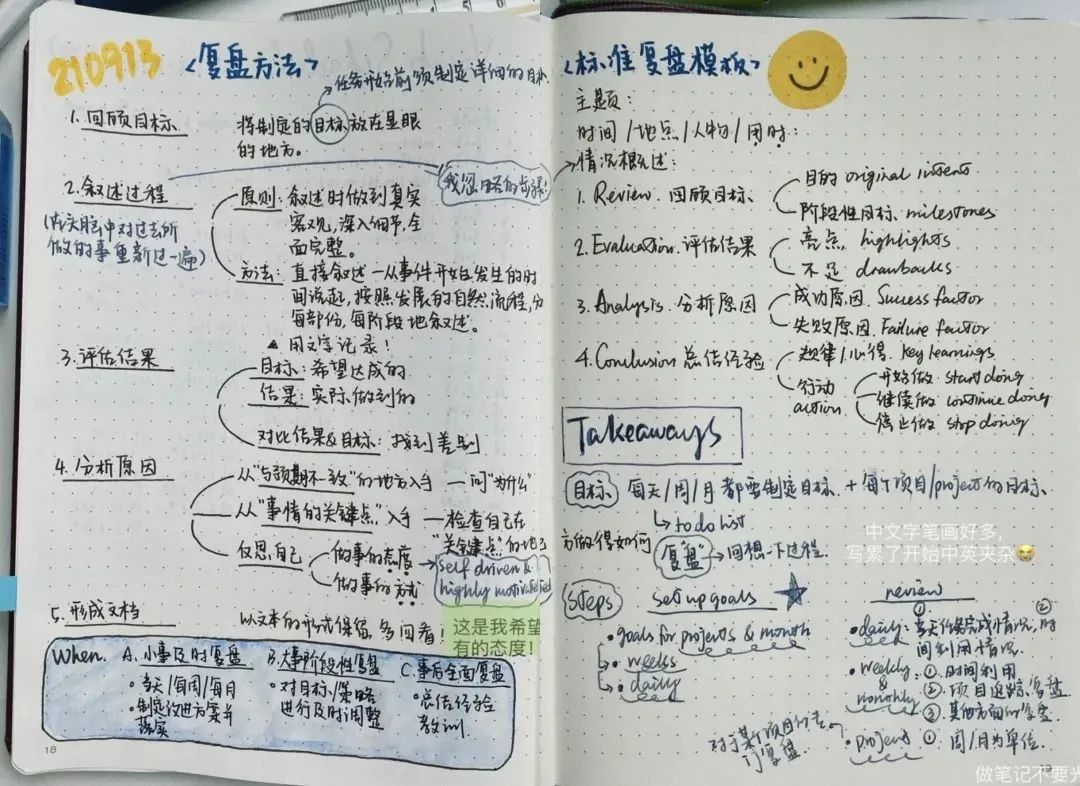 210913
<复盘方法>
任务开始前须制定详细的目标
1. 回顾目标
将制定的目标放在显眼
的地方。
我忽略的步骤!
2. 叙述过程
(在头脑中对过去所
做的事重新过一遍)
原则: 叙述时做到真实
客观,深入细节,全
面完整。
方法: 直接叙述—从事件开始发生的时
间说起,按照发展的自然流程,分
每部份,每阶段地叙述。
▲ 用文字记录!
3. 评估结果
目标: 希望达成的
结果: 实际做到的
对比结果&目标: 找到差别
4. 分析原因
从“与预期不致”的地方入手 — 问“为什么”
从“事情的关键点”入手 — 检查自己在
“关键点”的地
仅思自己
做事的态度
做事的方式
self driven &
highly motivated
这是我希望
有的态度!
5. 形成文档
以文本的形式保留,多回看!
When.
A. 小事及时复盘
• 每天/每周/每月
• 制定改进方案并
落实
B. 大事阶段性复盘
• 对目标/策略
进行及时调整
C. 事后全面复盘
• 总结经验
教训
18
<标准复盘模板>
主题:
时间/地点/人物/用时:
情况概述:
1. Review. 回顾目标.
目的 original intents
阶段性目标. milestones
2. Evaluation. 评估结果
亮点. highlights
不足 drawbacks
3. Analysis. 分析原因
成功原因. Success factor
失败原因. Failure factor
4. Conclusion 总结经验
规律/心得. key learnings
行动
action
开始做 start doing
继续做 continue doing
停止做 stop doing
Takeaways
目标 每天/周/月都要制定目标. + 每个项目/project的目标.
to do list
方做得如何
“复盘” → 回想一下过程.
中文字笔画好多,
写累了开始中英夹杂😭
Steps
set up goals
• goals for projects & month
• weeks
• daily
review
• daily: ① 每天任务完成情况, ② 时
间利用情况.
• weekly
&
monthly
① 时间利用
② 项目追踪、复盘.
③ 其他方面的复盘.
• project ① 周/月为单位.
复盘.
做笔记不要光